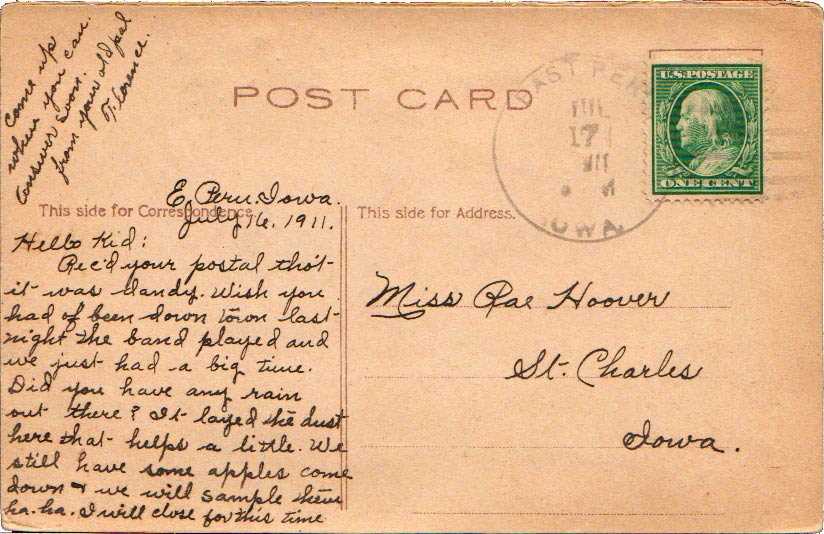 Come up
when you can.
answer soon.
from your old pal
Florence.
POST CARD
EAST PERU
JUL
17
1911
IOWA.
U.S. POSTAGE
ONE CENT
This side for Correspondence.
This side for Address.
E. Peru. Iowa.
July 16, 1911.
Hello Kid:
Rec'd your postal tho't
it was dandy. Wish you
had of been down town last
night the band played and
we just had a big time.
Did you have any rain
out there? It layed the dust
here that helps a little. We
still have some apples come
down & we will sample them
ha. ha. I will close for this time
Miss Rae Hoover
St. Charles
Iowa.